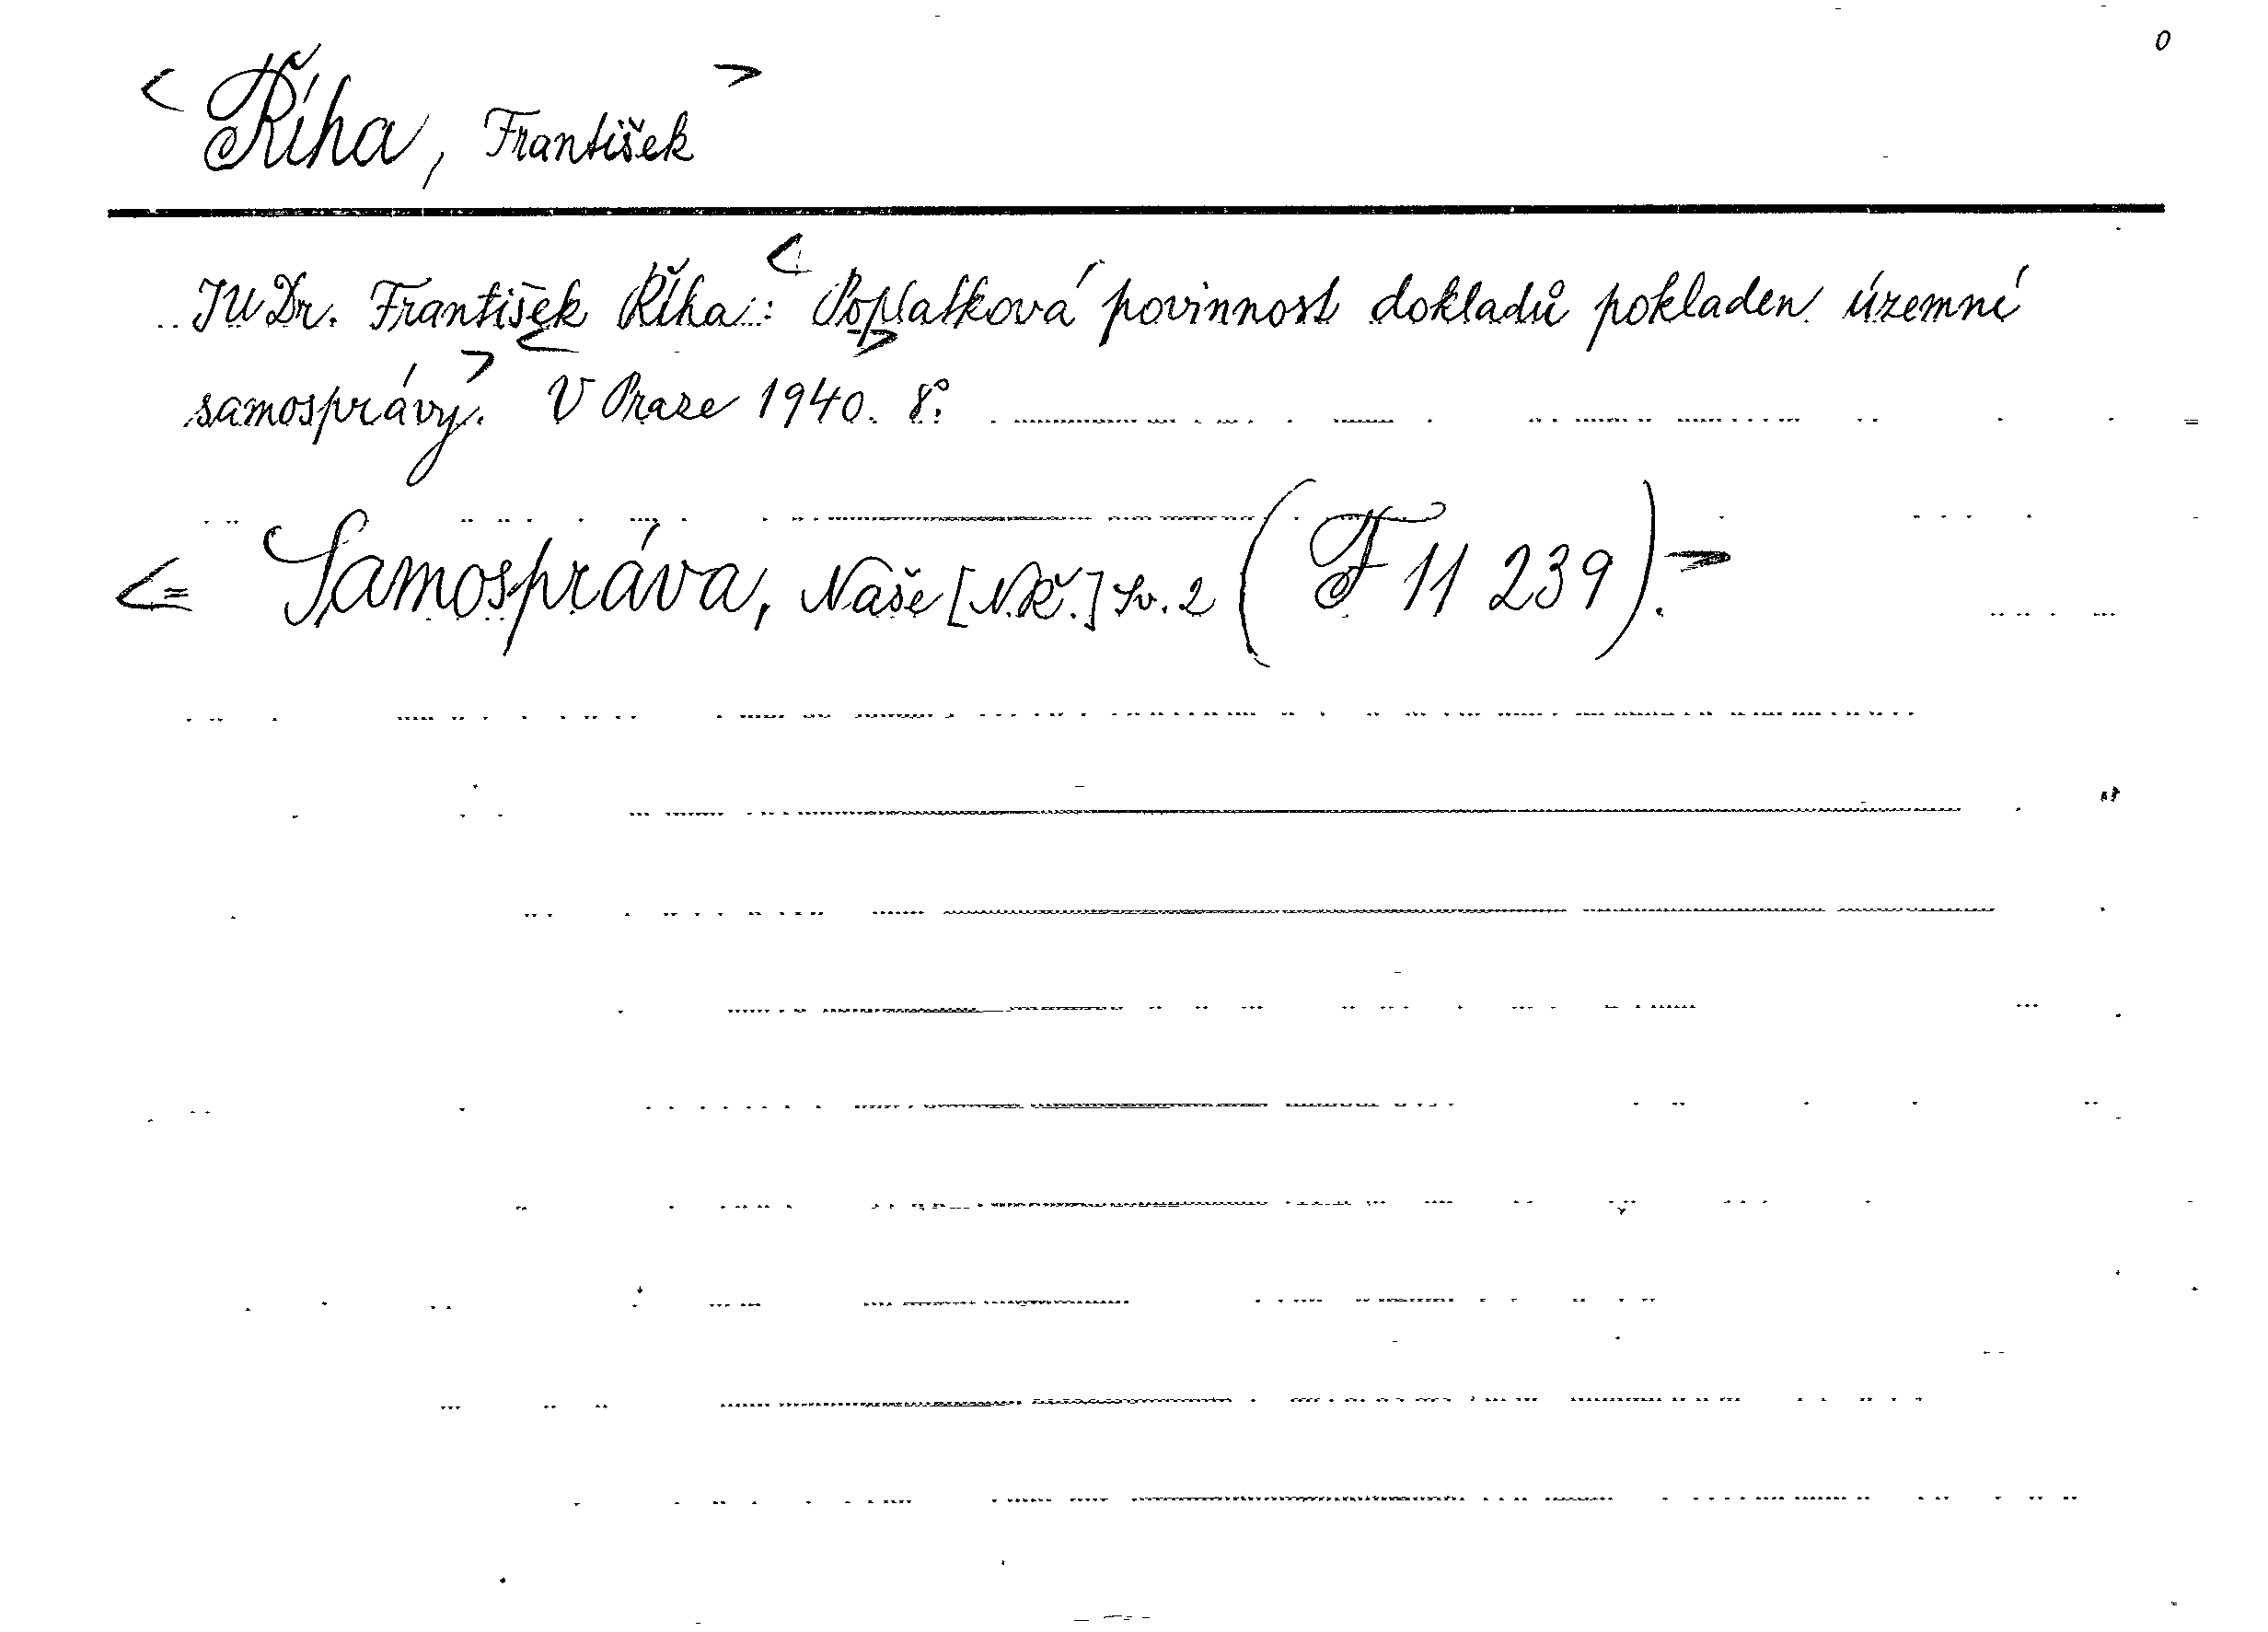 0
< Říha, František >
JUDr. František Říha: < Poplatková povinnost dokladů pokladen územní
samosprávy. > < V Praze > 1940. 8°.
<= Samospráva, Naše [N.Ř.] Sv. 2 (F 11 239). >